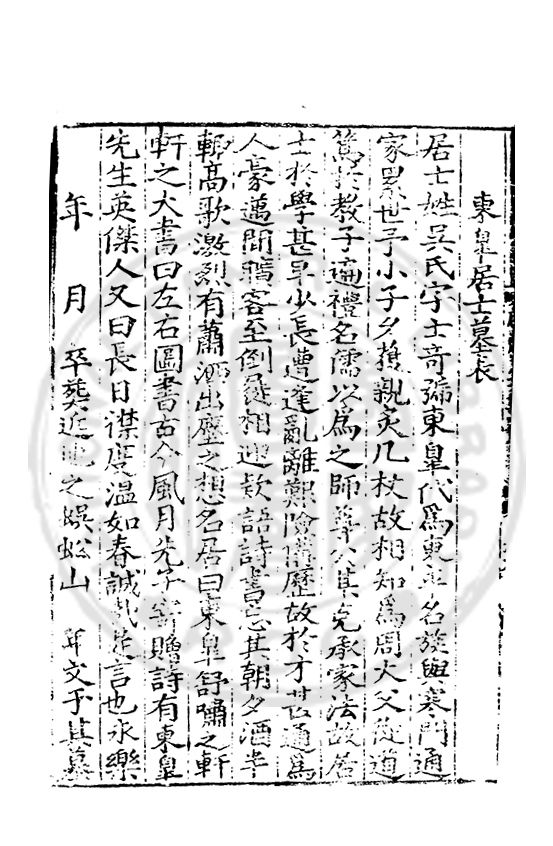 東皐居士墓表
居士姓吳氏字士奇號東皐代為東平名族與寒門通
家累世予小子夕獲親炙几杖故相知為周大父從道
篤於教子遍禮名儒以為之師尊公其克承家法故居
士於學甚早少長遭逢亂離艱險備歷故於才甚通為
人豪邁閒曠客至倒屣相迎欵語詩書忘其朝夕酒半
輙高歌激烈有蕭洒出塵之想名居曰東皐舒嘯之軒
軒之大書曰左右圖書古今風月先子嘗贈詩有東皐
先生英傑人又曰長日襟度溫如春誠哉是言也永樂
年 月 卒葬近地之蜈蚣山 年文于其墓